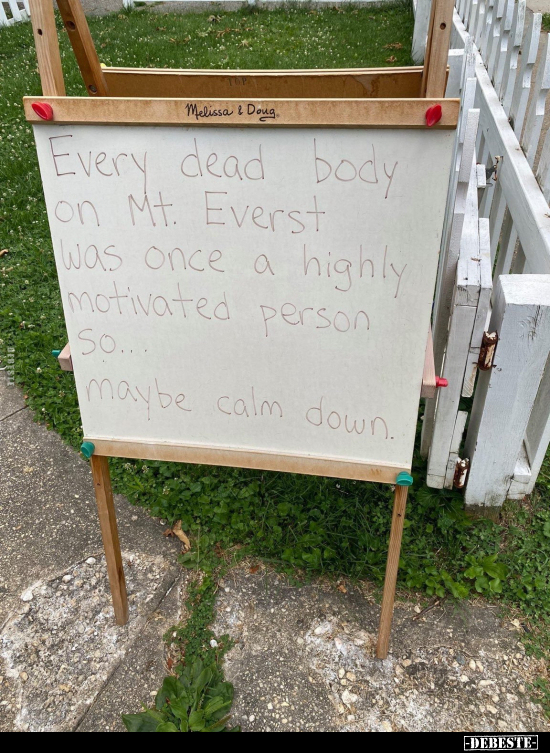 Melissa & Doug
Every dead body
on Mt. Everst
was once a highly
motivated person
so...
maybe calm down.
-DEBESTE-